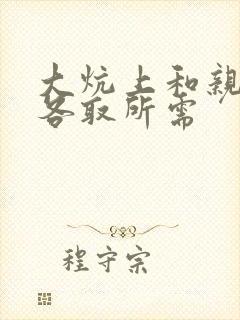 大炕上和親
各取所需
程守宗